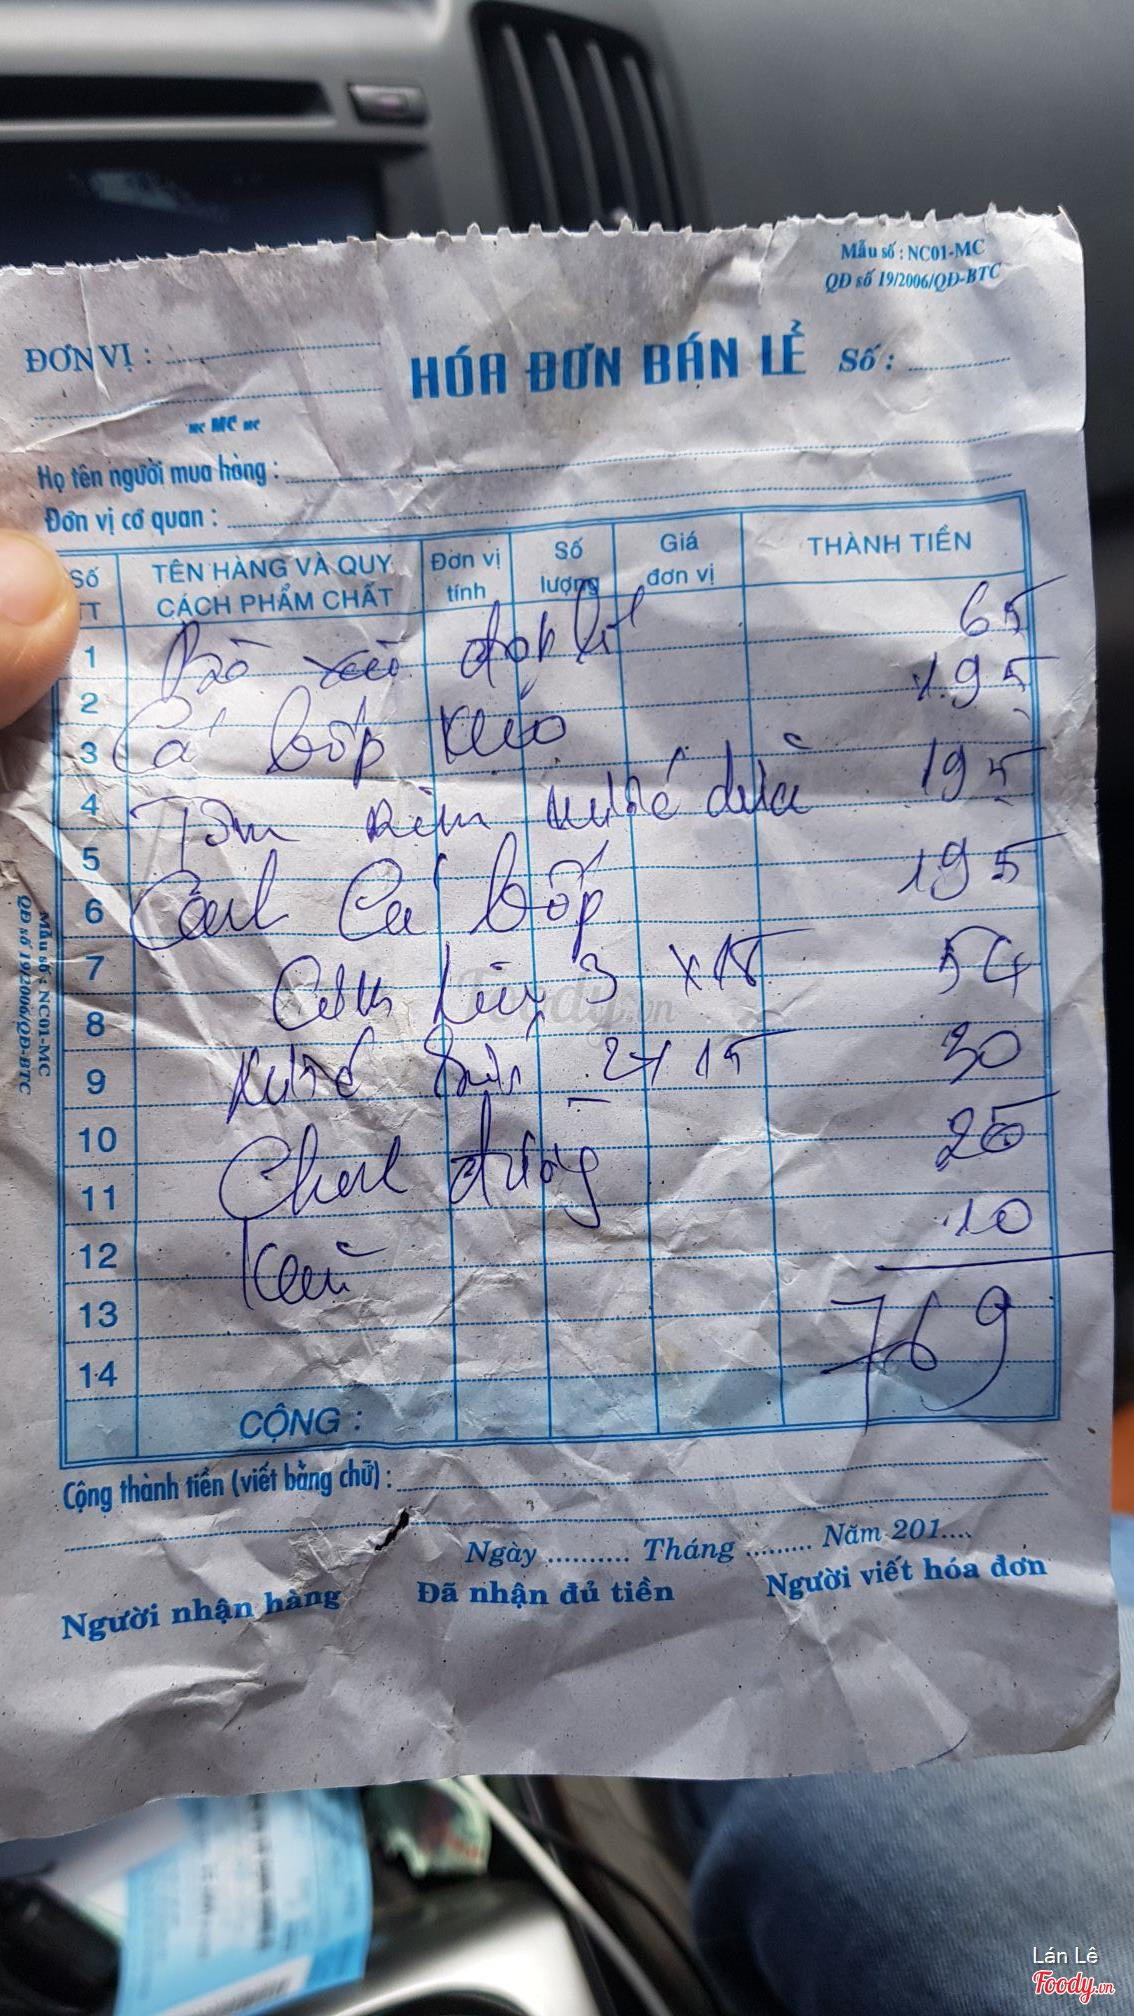 Mẫu số : NC01-MC
QĐ số 19/2006/QĐ-BTC
ĐƠN VỊ :
HÓA ĐƠN BÁN LẺ
Số :
MC MC MC
Họ tên người mua hàng :
Đơn vị cơ quan :
Số TT TÊN HÀNG VÀ QUY CÁCH PHẨM CHẤT Đơn vị tính Số lượng Giá đơn vị THÀNH TIỀN
1 Bò xào 65
2 195
3 Cá bớp kho
4 Tôm rim nước dừa 195
5 195
6 Canh cá bớp
7 Cơm 3 x 18 54
8
9 Nước 2 x 15 30
10 25
11 Chanh đường 10
12 Khăn
13 769
14
CỘNG :
Cộng thành tiền (viết bằng chữ) :
Ngày .......... Tháng ......... Năm 201....
Người nhận hàng Đã nhận đủ tiền Người viết hóa đơn
Mẫu số : NC01-MC
QĐ số 19/2006/QĐ-BTC
Foody.vn
Lán Lê
Foody.vn